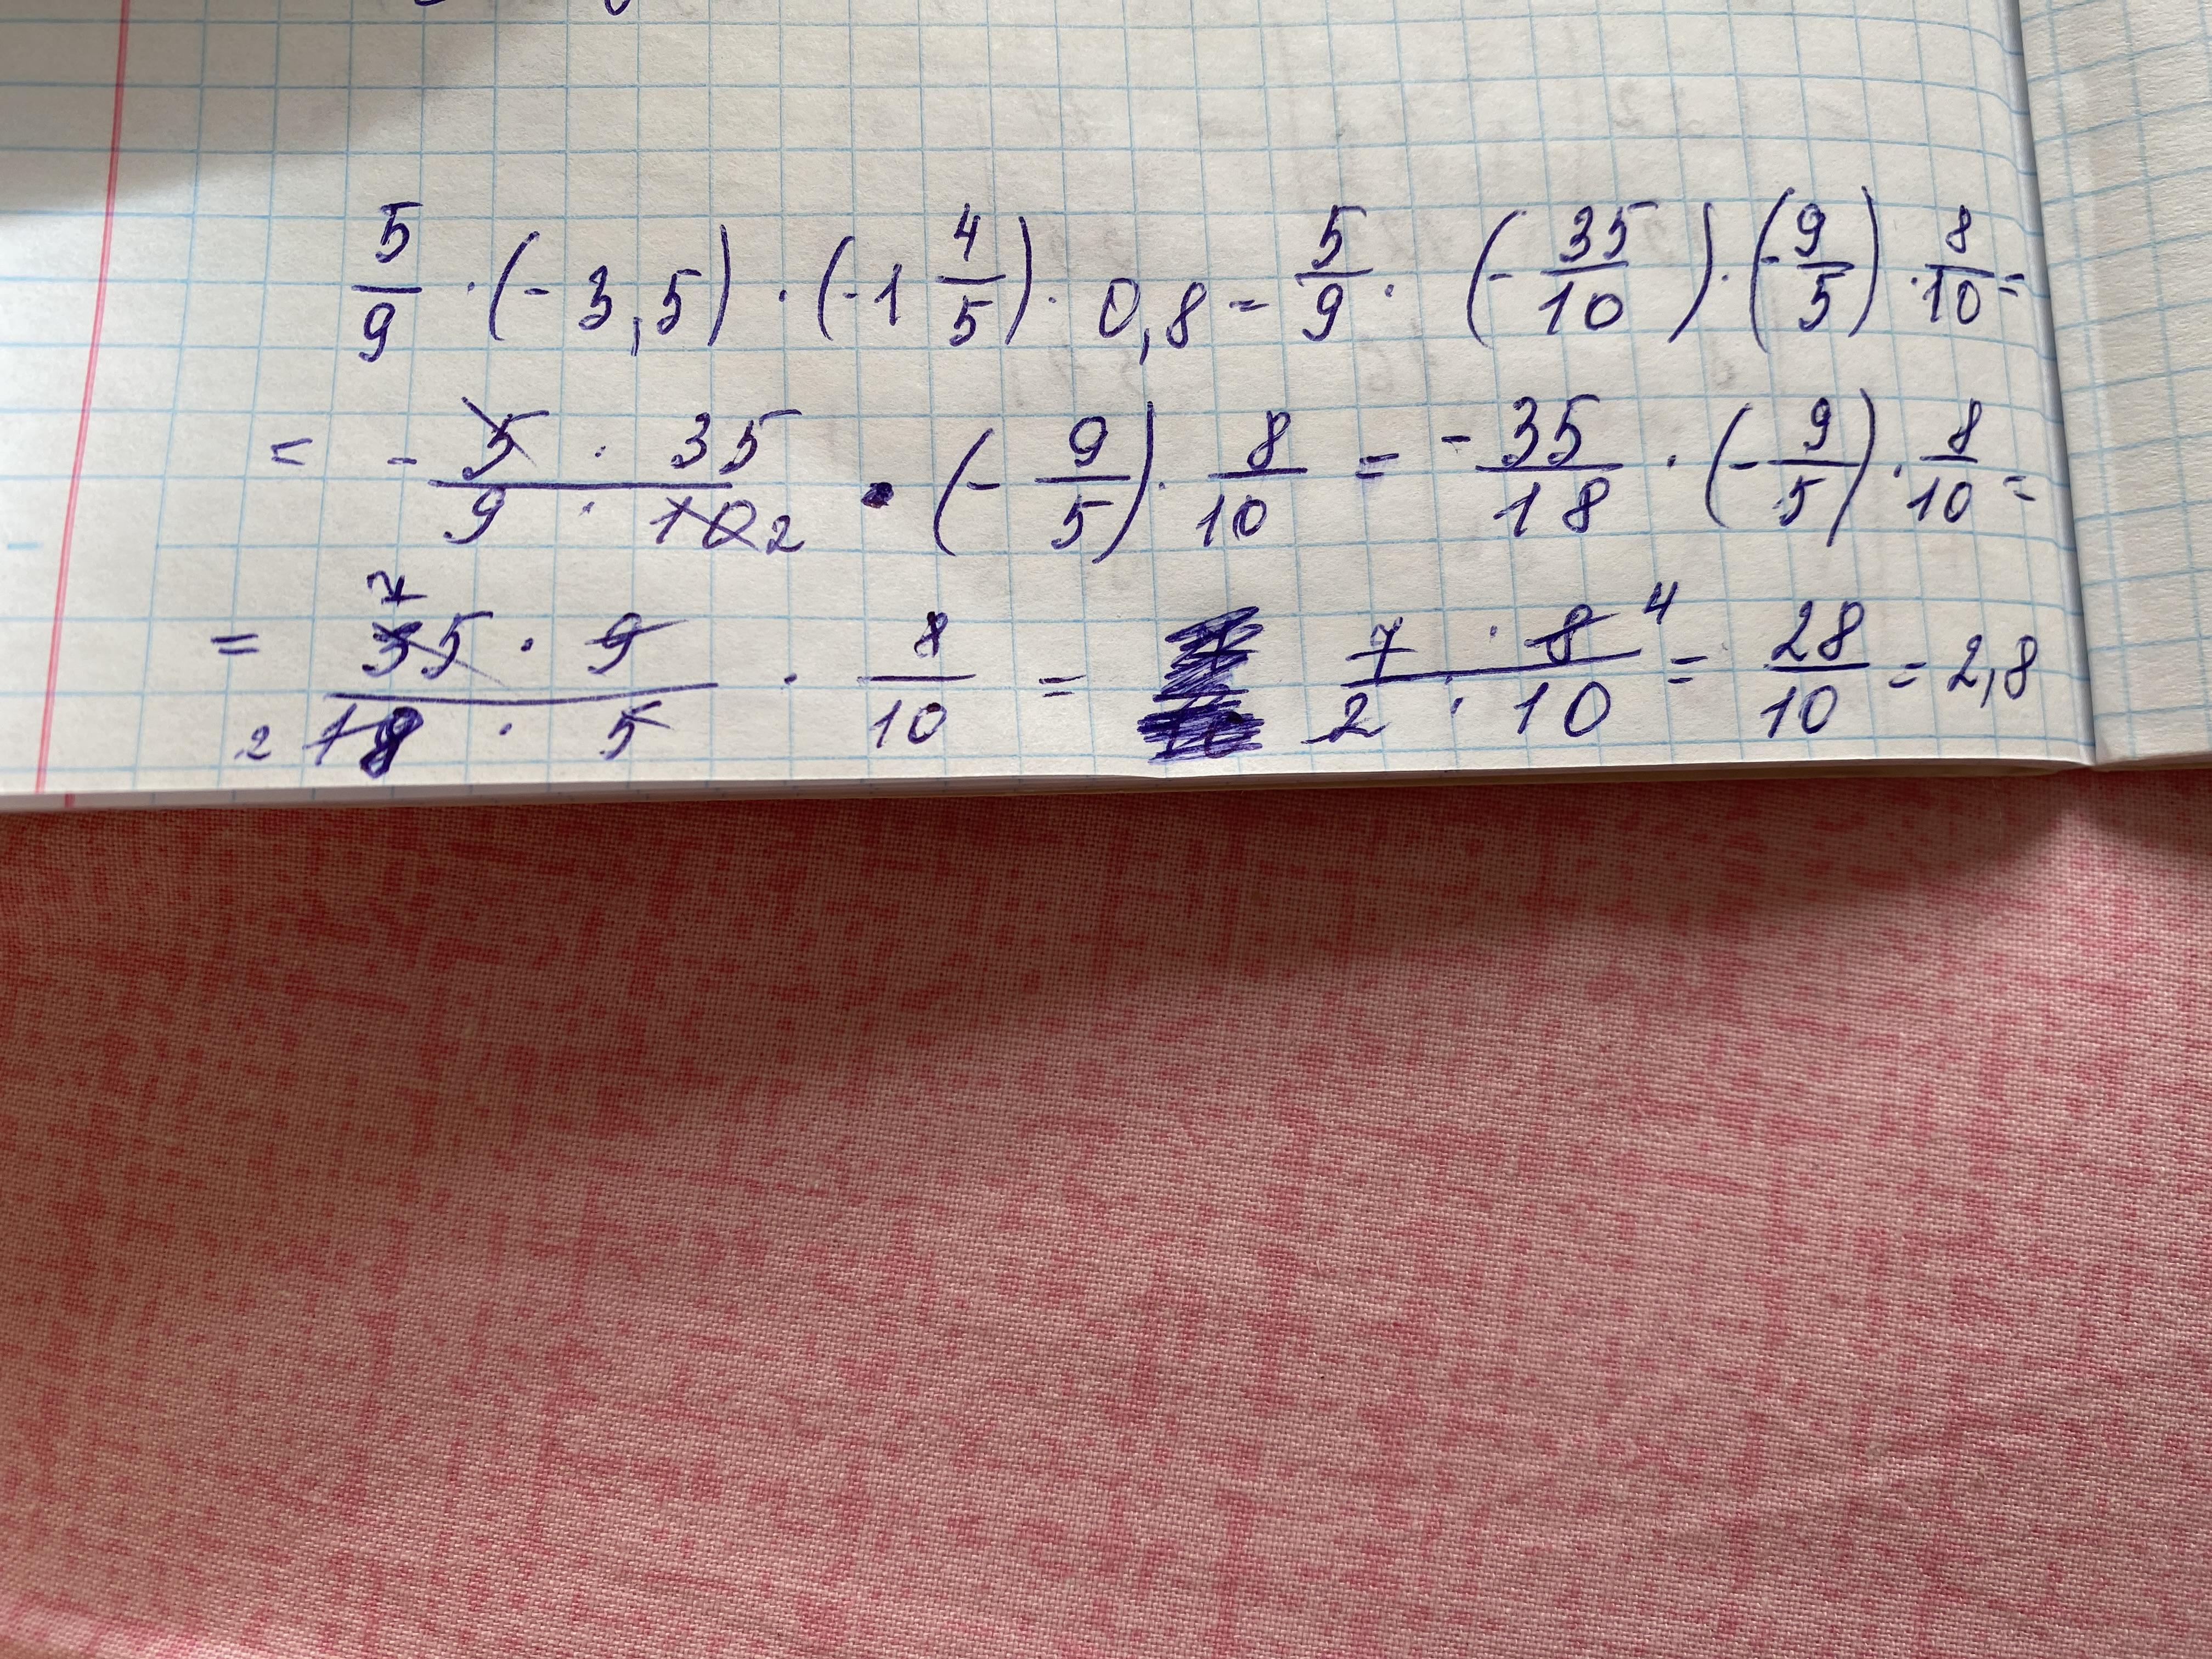 5/9 · (-3,5) · (-1 4/5) · 0,8 = 5/9 · (-35/10) · (-9/5) · 8/10 =
= - 5 · 35 / 9 · 10 2 · (-9/5) · 8/10 = - 35/18 · (-9/5) · 8/10 =
= 7 35 · 9 / 2 18 · 5 · 8/10 = 7 · 8 4 / 2 · 10 = 28/10 = 2,8